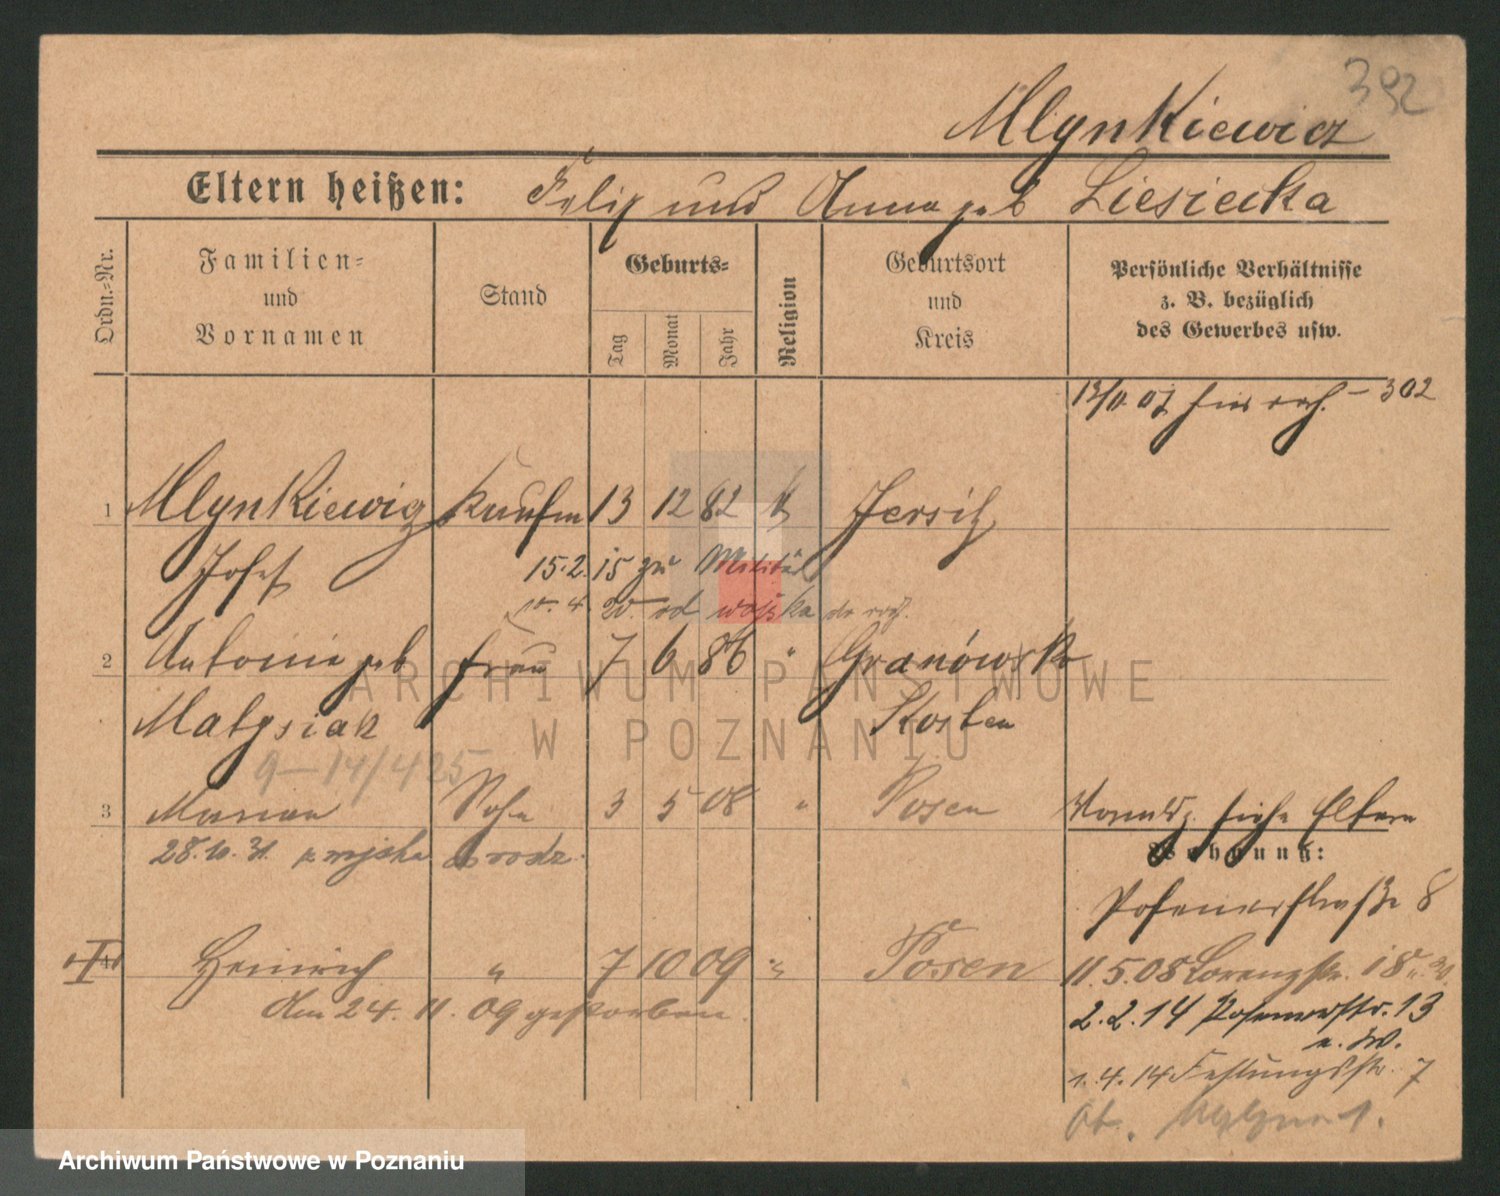 392
Mlynkiewicz
Eltern heißen: Felix und Anna geb Liesiecka
Ordn.-Nr.
Familien- und Vornamen
Stand
Geburts-
Tag
Monat
Jahr
Religion
Geburtsort und Kreis
Persönliche Verhältnisse z. B. bezüglich des Gewerbes usw.
13/11 07 - 302
1 Mlynkiewicz Kaufm 13 12 82 k Jersitz
Josef 15.2.15 zu Militär
10. 4. 20. od wojska
2 Antonie geb Frau 7 6 86 " Granówko
Matysiak Kosten
9-14/425
3 Marian Sohn 3 5 08 " Posen
28.10.31.
Vorund. siehe Eltern
Wohnung:
Posenerstraße 8
4 Heinrich " 7 10 09 " Posen
11.5.08 Lorenzstr. 18
Am 24. 11. 09 gestorben.
2.2.14 Posenerstr. 13
n. W.
1.4.14 Festungsstr. 7
ARCHIWUM PAŃSTWOWE
W POZNANIU
Archiwum Państwowe w Poznaniu